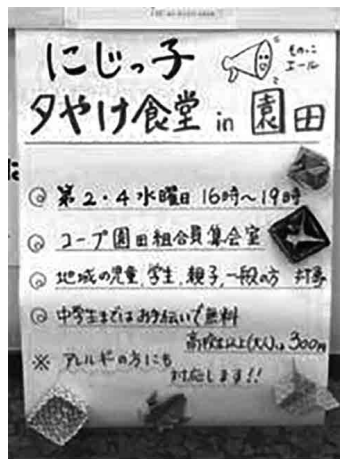 にじっ子
夕やけ食堂 in 園田
エール
◎ 第2・4水曜日 16時〜19時
◎ コープ園田組合員集会室
◎ 地域の児童、学生、親子、一般の方 対象
◎ 中学生まではお手伝いで無料
高校生以上(大人)は300円
※ アレルギーの方にも
対応します!!